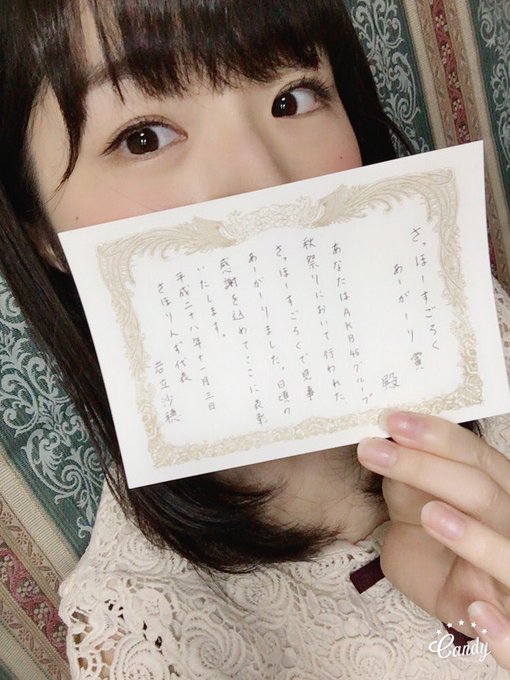 さっほーすごろく
あーがーり賞
殿
あなたはAKB46グループ
秋祭りにおいて行われた、
さっほーすごろくで見事
あーがーりました。日頃の
感謝を込めてここに表彰
いたします。
平成二十八年十一月三日
さほりんず代表
岩立沙穂
Candy